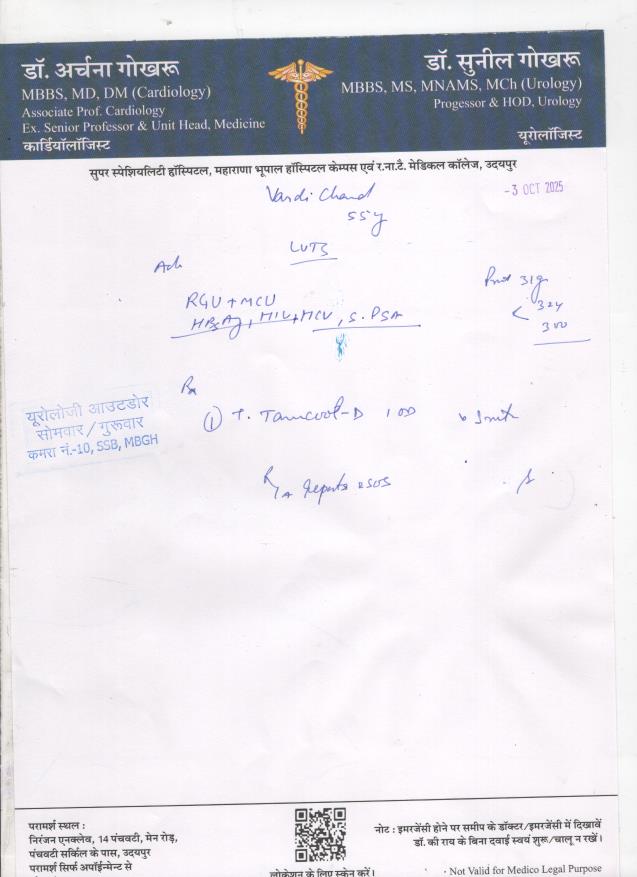 डॉ. अर्चना गोखरू
MBBS, MD, DM (Cardiology)
Associate Prof. Cardiology
Ex. Senior Professor & Unit Head, Medicine
कार्डियॉलॉजिस्ट
डॉ. सुनील गोखरू
MBBS, MS, MNAMS, MCh (Urology)
Progessor & HOD, Urology
यूरोलॉजिस्ट
सुपर स्पेशियलिटी हॉस्पिटल, महाराणा भूपाल हॉस्पिटल केम्पस एवं र.ना.टै. मेडिकल कॉलेज, उदयपुर
Vardi Chand
- 3 OCT 2025
55y
LUTS
Adv
Prost 31g
RGU + MCU
324
300
, S. PSA
Rx
① T. Tamcool-D 1 OD
यूरोलॉजी आउटडोर
सोमवार / गुरूवार
कमरा नं.-10, SSB, MBGH
Reports
परामर्श स्थल :
निरंजन एनक्लेव, 14 पंचवटी, मेन रोड़,
पंचवटी सर्किल के पास, उदयपुर
परामर्श सिर्फ अपॉईन्मेन्ट से
लोकेशन के लिए स्केन करें।
नोट : इमरजेंसी होने पर समीप के डॉक्टर/इमरजेंसी में दिखावें
डॉ. की राय के बिना दवाई स्वयं शुरू/चालू न रखें।
· Not Valid for Medico Legal Purpose